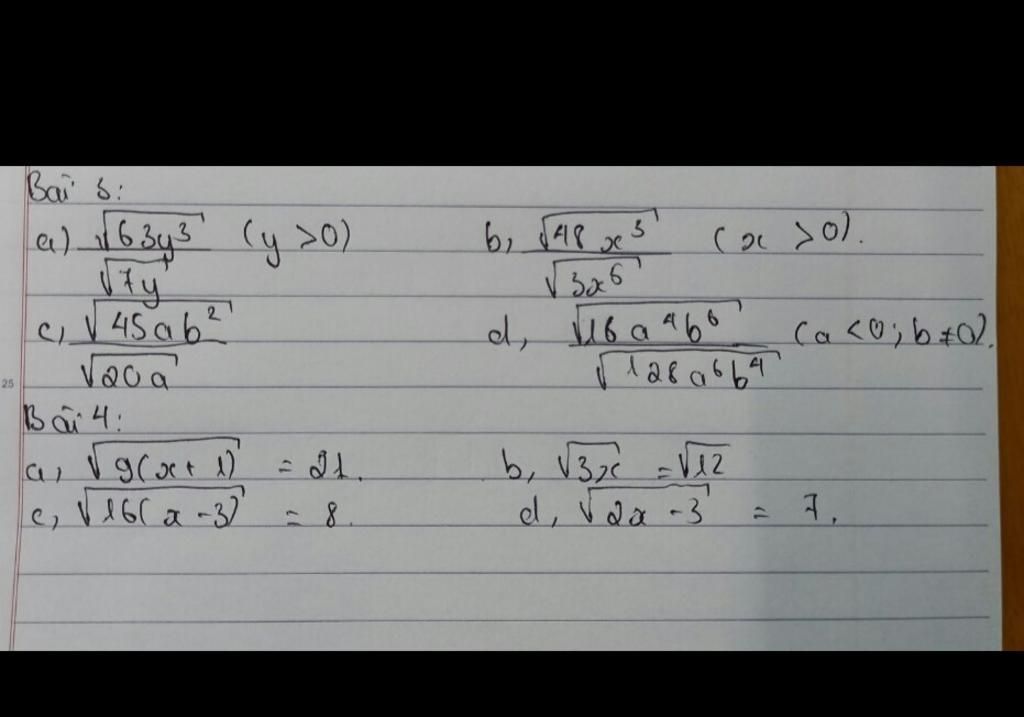 Bài 3:
a) √63y³ / √7y (y > 0) b, √48x³ / √3x⁶ (x > 0).
c, √45ab² / √20a d, √16a⁴b⁶ / √128a⁶b⁴ (a < 0; b ≠ 0).
25
Bài 4:
a, √9(x + 1) = 21. b, √3x = √12
c, √16(x - 3) = 8. d, √2x - 3 = 7.